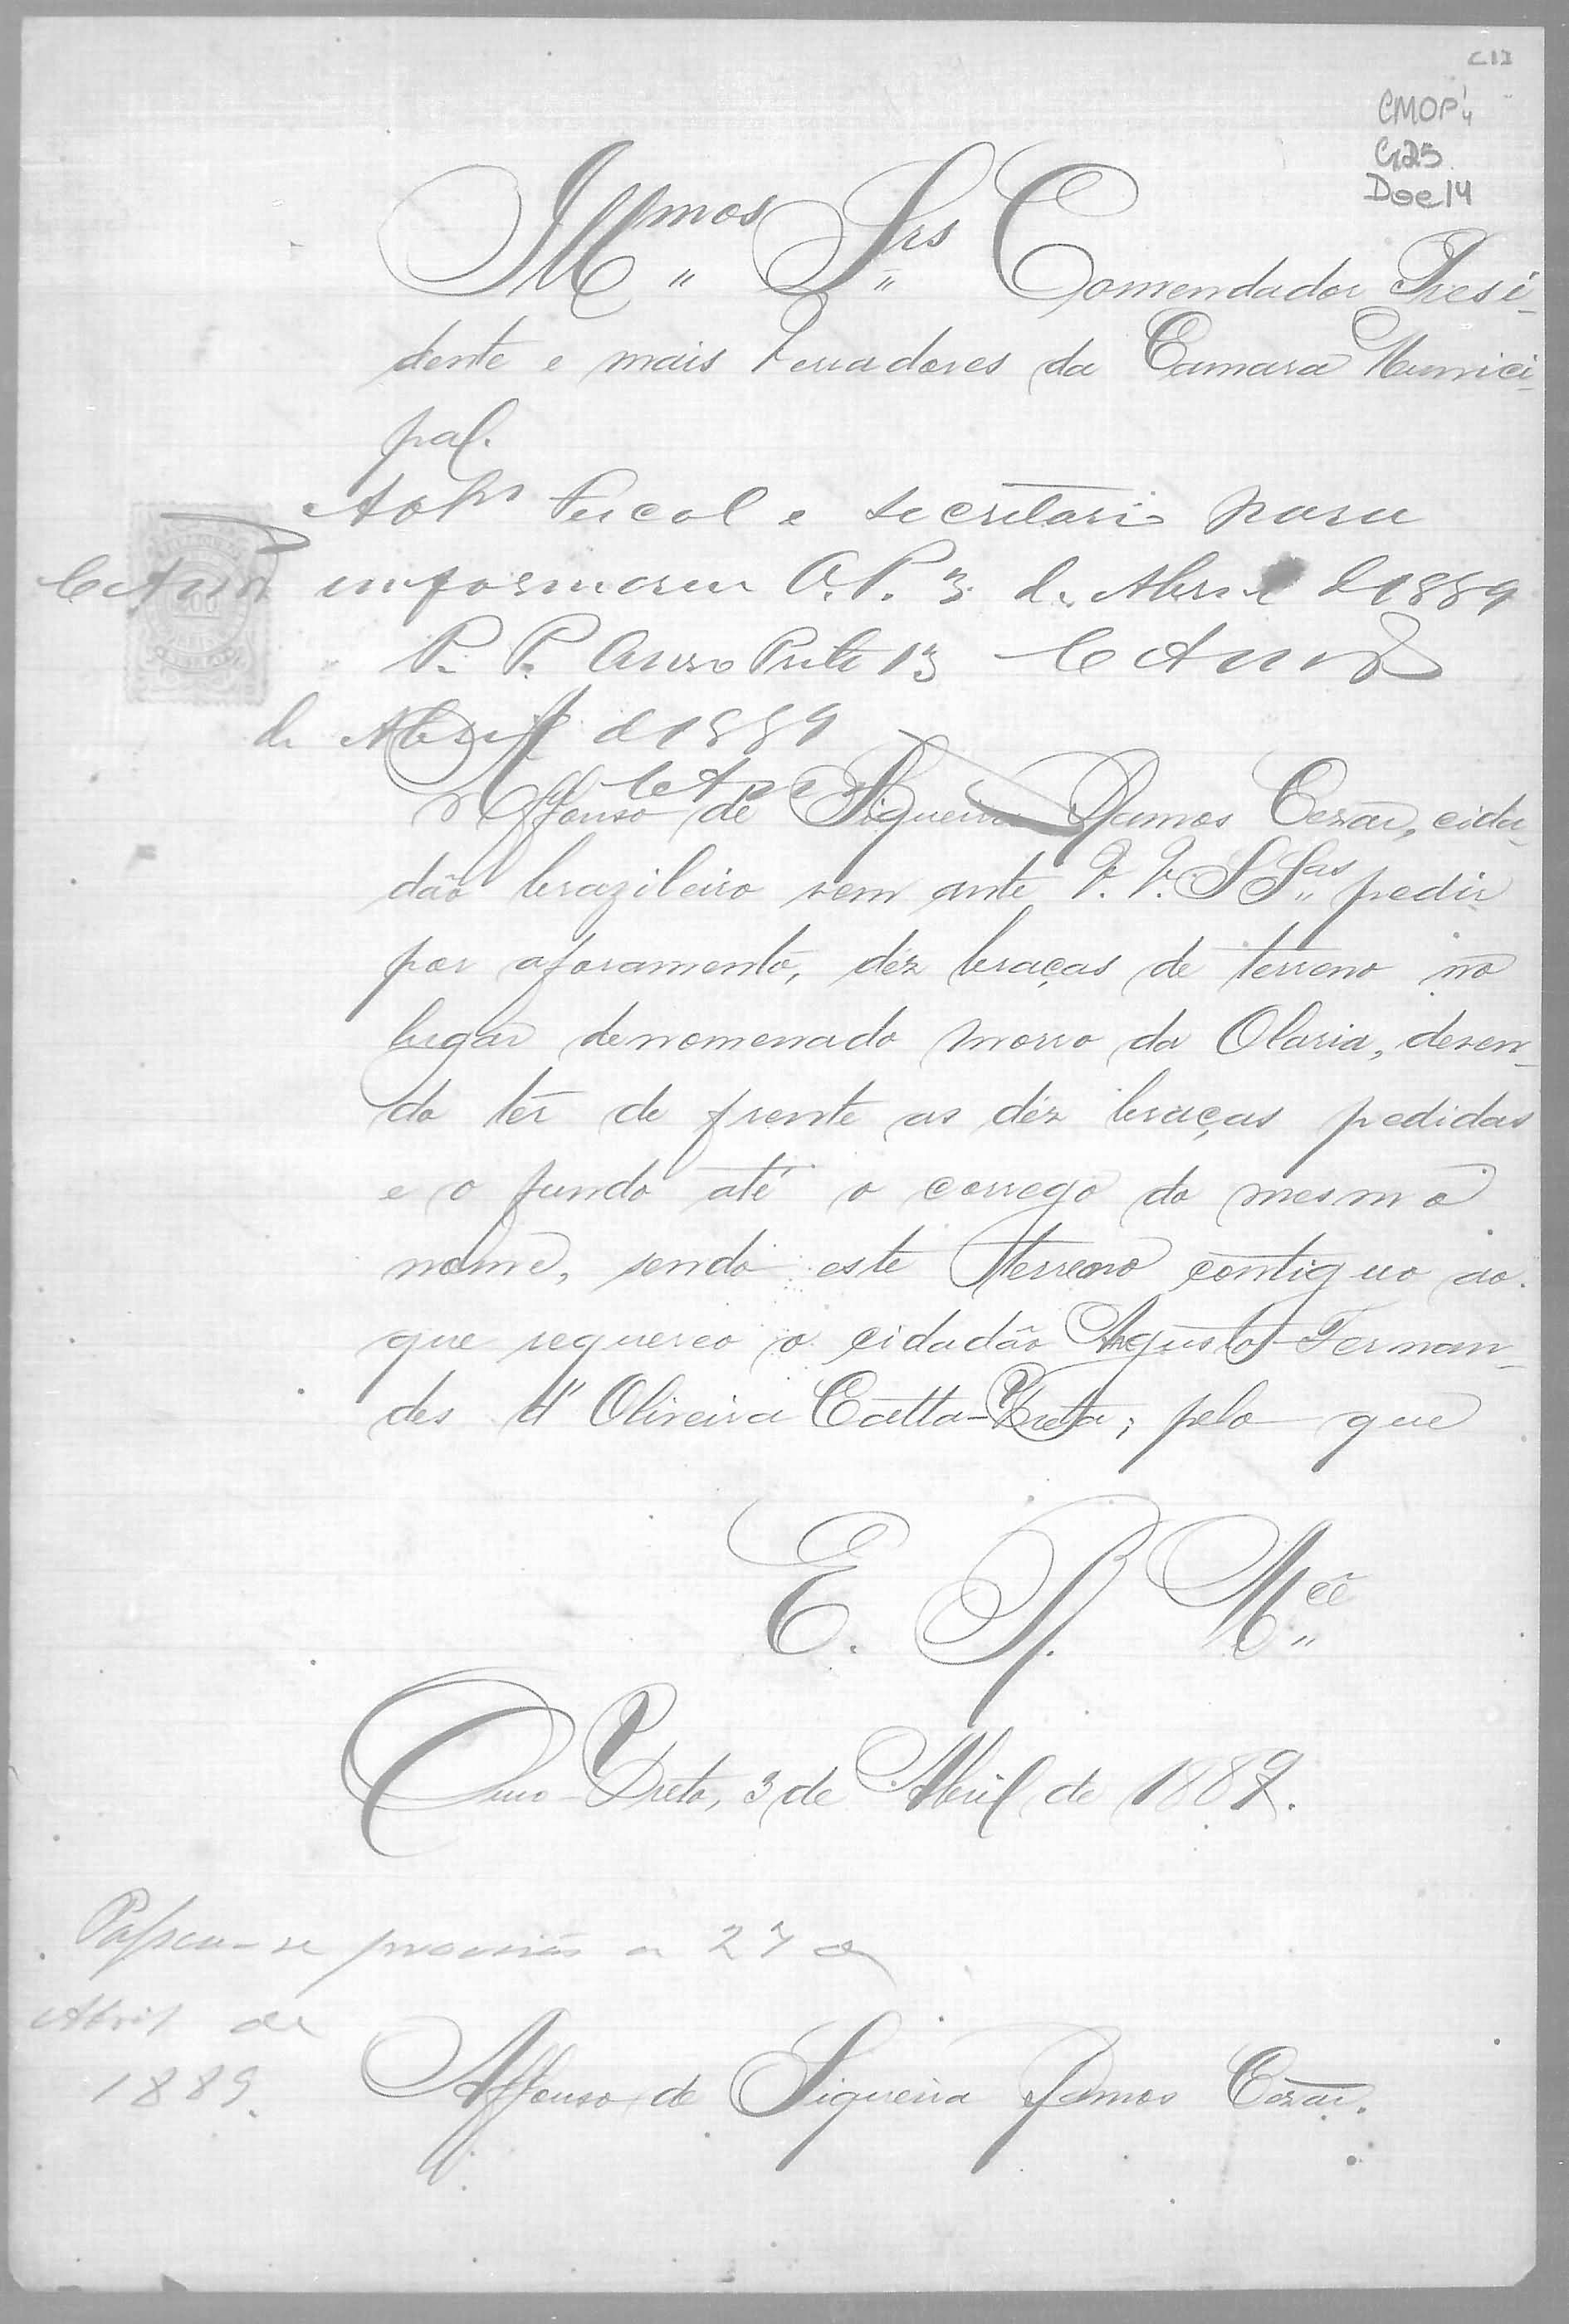 CMOP
Cx25
Doc 14
Illmos Srs Comendador Presi-
dente e mais Vereadores da Camara Munici-
pal.
Ao Sr Fiscal e secretario para
informarem O. P. 3 de Abril d 1889
P. P. Ouro Preto 13
de Abril d 1889
Affonso de Siqueira Ramos Cezar, cida-
dão brazileiro vem ante V. V. S Sas pedir
por aforamento, déz braças de terreno no
lugar denomenado morro da Olaria, deven-
do ter de frente as déz braças pedidas
e o fundo até o corrego do mesmo
nome, sendo este terreno contiguo ao
que requereo o cidadão Augusto Fernan-
des d'' Oliveira Catta-Preta; pelo que
E. R. Mcê
Ouro-Preto, 3 de Abril de 1889.
Passou-se provisão a 27 de
Abril de
1889.
Affonso de Siqueira Ramos Cezar.